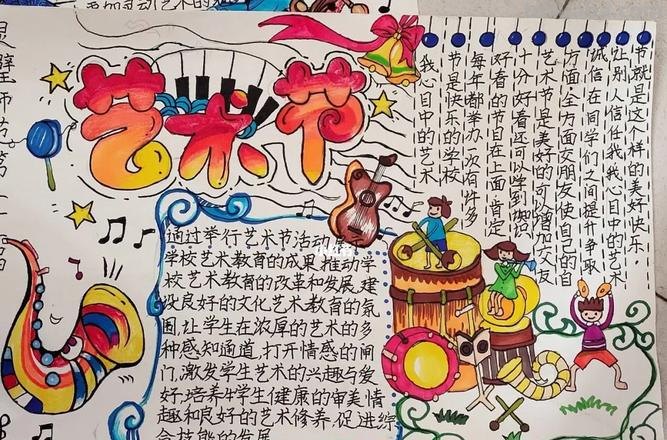 艺术节
我心目中的艺术
节是快乐的学校
每年都举办一次有许多
好看的节目在上面肯定
十分好看还可以学到知识,
艺术节是美好的可以增加交友
方面,全方面交朋友使自己的自
诚信在同学们之间提升争取
让别人信任我我心目中的艺术
节就是这个样的美好快乐,
通过举行艺术节活动,
学校艺术教育的成果,推动学
校艺术教育的改革和发展,建
设良好的文化艺术教育的氛
围,让学生在浓厚的艺术的多
种感知通道,打开情感的闸
门,激发学生艺术的兴趣与爱
好,培养学生健康的审美情
趣和良好的艺术修养,促进综
合技能的发展